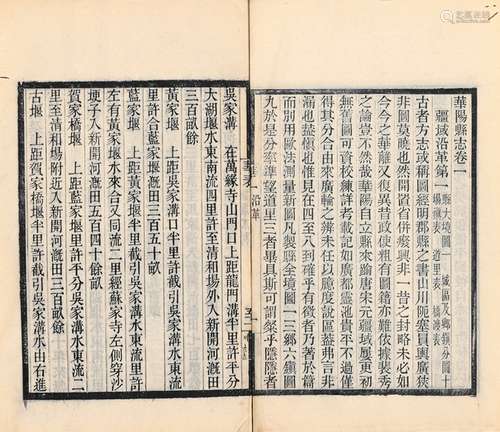 華陽縣志卷一
疆域沿革第一 縣大境圖一 城區及鄉鎮分圖十
道里表
古者方志或稱圖經明郡縣之書山川阨塞員輿廣狹
非圖莫曉也然開省併廢興非一昔之封略未必如
今今之華離又復異昔政使粗有圖籍亦難依據裴秀
之論豈不然哉華陽自立縣來踰唐宋元疆域屢更初
無舊圖可資校練詳者載記如廣都靈池貴平不過僅
得其分合由來廣輪之辨未任以臆度說區蓋弗言非
漏也蓋慎也惟見在四至八到確乎有徵者乃著於篇
而別用歐法測量新圖凡製縣全境圖一三鄉六鎮圖
九於是分率準望道里三者畢具斯可謂粲乎隱隱者
沿革
吳家溝 在萬緣寺山門口上距龍門溝半里許平分
大湖堰水東南流四里許至清和場外入新開河溉田
三百畝餘
黃家堰 上距吳家溝口半里許截引吳家溝水東流
里許合藍家堰溉田三百五十畝
藍家堰 上距黃家堰半里許截引吳家溝水東流里許
左右有黃家堰水來合又同流二里經蘇家寺左側穿沙
埂子入新開河溉田五百四十餘畝
賀家橋堰 上距藍家堰半里許截引吳家溝水東流二
里至清和場附近入新開河溉田三百畝餘
古堰 上距賀家橋堰半里許截引吳家溝水由右進